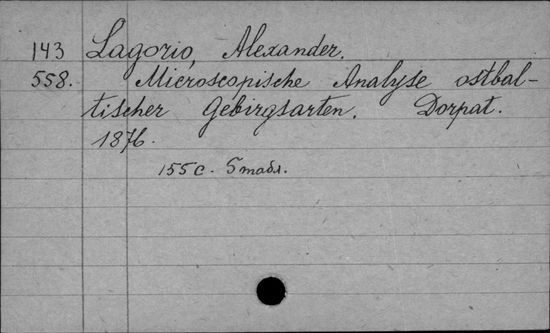 143 Lagorio, Alexander.
558. Microscopische Analyse ostbal-
tischer Gebirgsarten. Dorpat.
1876.
155 c. 5 табл.